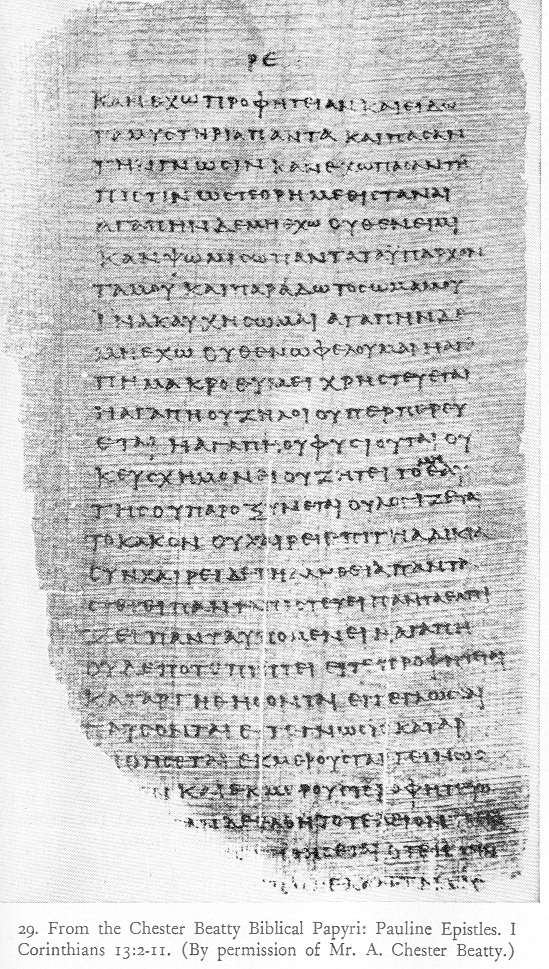 ΡΕ
ΚΑΝΕΧΩΠΡΟΦΗΤΕΙΑΝΚΑΙΕΙΔΩ
ΤΑΜΥϹΤΗΡΙΑΠΑΝΤΑΚΑΙΠΑϹΑΝ
ΤΗΝΓΝΩϹΙΝΚΑΝΕΧΩΠΑϹΑΝΤΗ
ΠΙϹΤΙΝΩϹΤΕΟΡΗΜΕΘΙϹΤΑΝΑΙ
ΑΓΑΠΗΝΔΕΜΗΕΧΩΟΥΘΕΝΕΙΜΙ
ΚΑΝΨΩΜΙϹΩΠΑΝΤΑΤΑΫΠΑΡΧΟΝ
ΤΑΜΟΥΚΑΙΠΑΡΑΔΩΤΟϹΩΜΑΜΟΥ
ΙΝΑΚΑΥΧΗϹΩΜΑΙΑΓΑΠΗΝΔΕ
ΜΗΕΧΩΟΥΘΕΝΩΦΕΛΟΥΜΑΙΗΑΓΑ
ΠΗΜΑΚΡΟΘΥΜΕΙΧΡΗϹΤΕΥΕΤΑΙ
ΗΑΓΑΠΗΟΥΖΗΛΟΙΟΥΠΕΡΠΕΡΕΥ
ΕΤΑΙΗΑΓΑΠΗΟΥΦΥϹΙΟΥΤΑΙΟΥ
ΚΕΥϹΧΗΜΟΝΕΙΟΥΖΗΤΕΙΤΟΜΗΕΑΥ
ΤΗϹΟΥΠΑΡΟΞΥΝΕΤΑΙΟΥΛΟΓΙΖΕΤΑΙ
ΤΟΚΑΚΟΝΟΥΧΑΙΡΕΙΕΠΙΤΗΑΔΙΚΙΑ
ϹΥΝΧΑΙΡΕΙΔΕΤΗΑΛΗΘΕΙΑΠΑΝΤΑ
ϹΤΕΓΕΙΠΑΝΤΑΠΙϹΤΕΥΕΙΠΑΝΤΑΕΛΠΙ
ΖΕΙΠΑΝΤΑΥΠΟΜΕΝΕΙΗΑΓΑΠΗ
ΟΥΔΕΠΟΤΕΠΙΠΤΕΙΕΙΤΕΠΡΟΦΗΤΕΙΑΙ
ΚΑΤΑΡΓΗΘΗϹΟΝΤΑΙΕΙΤΕΓΛΩϹϹΑΙ
ΠΑΥϹΟΝΤΑΙΕΙΤΕΓΝΩϹΙϹΚΑΤΑΡ
ΓΗΘΗϹΕΤΑΙΕΚΜΕΡΟΥϹΓΑΡΓΕΙΝΩϹ
29. From the Chester Beatty Biblical Papyri: Pauline Epistles. I
Corinthians 13:2-11. (By permission of Mr. A. Chester Beatty.)